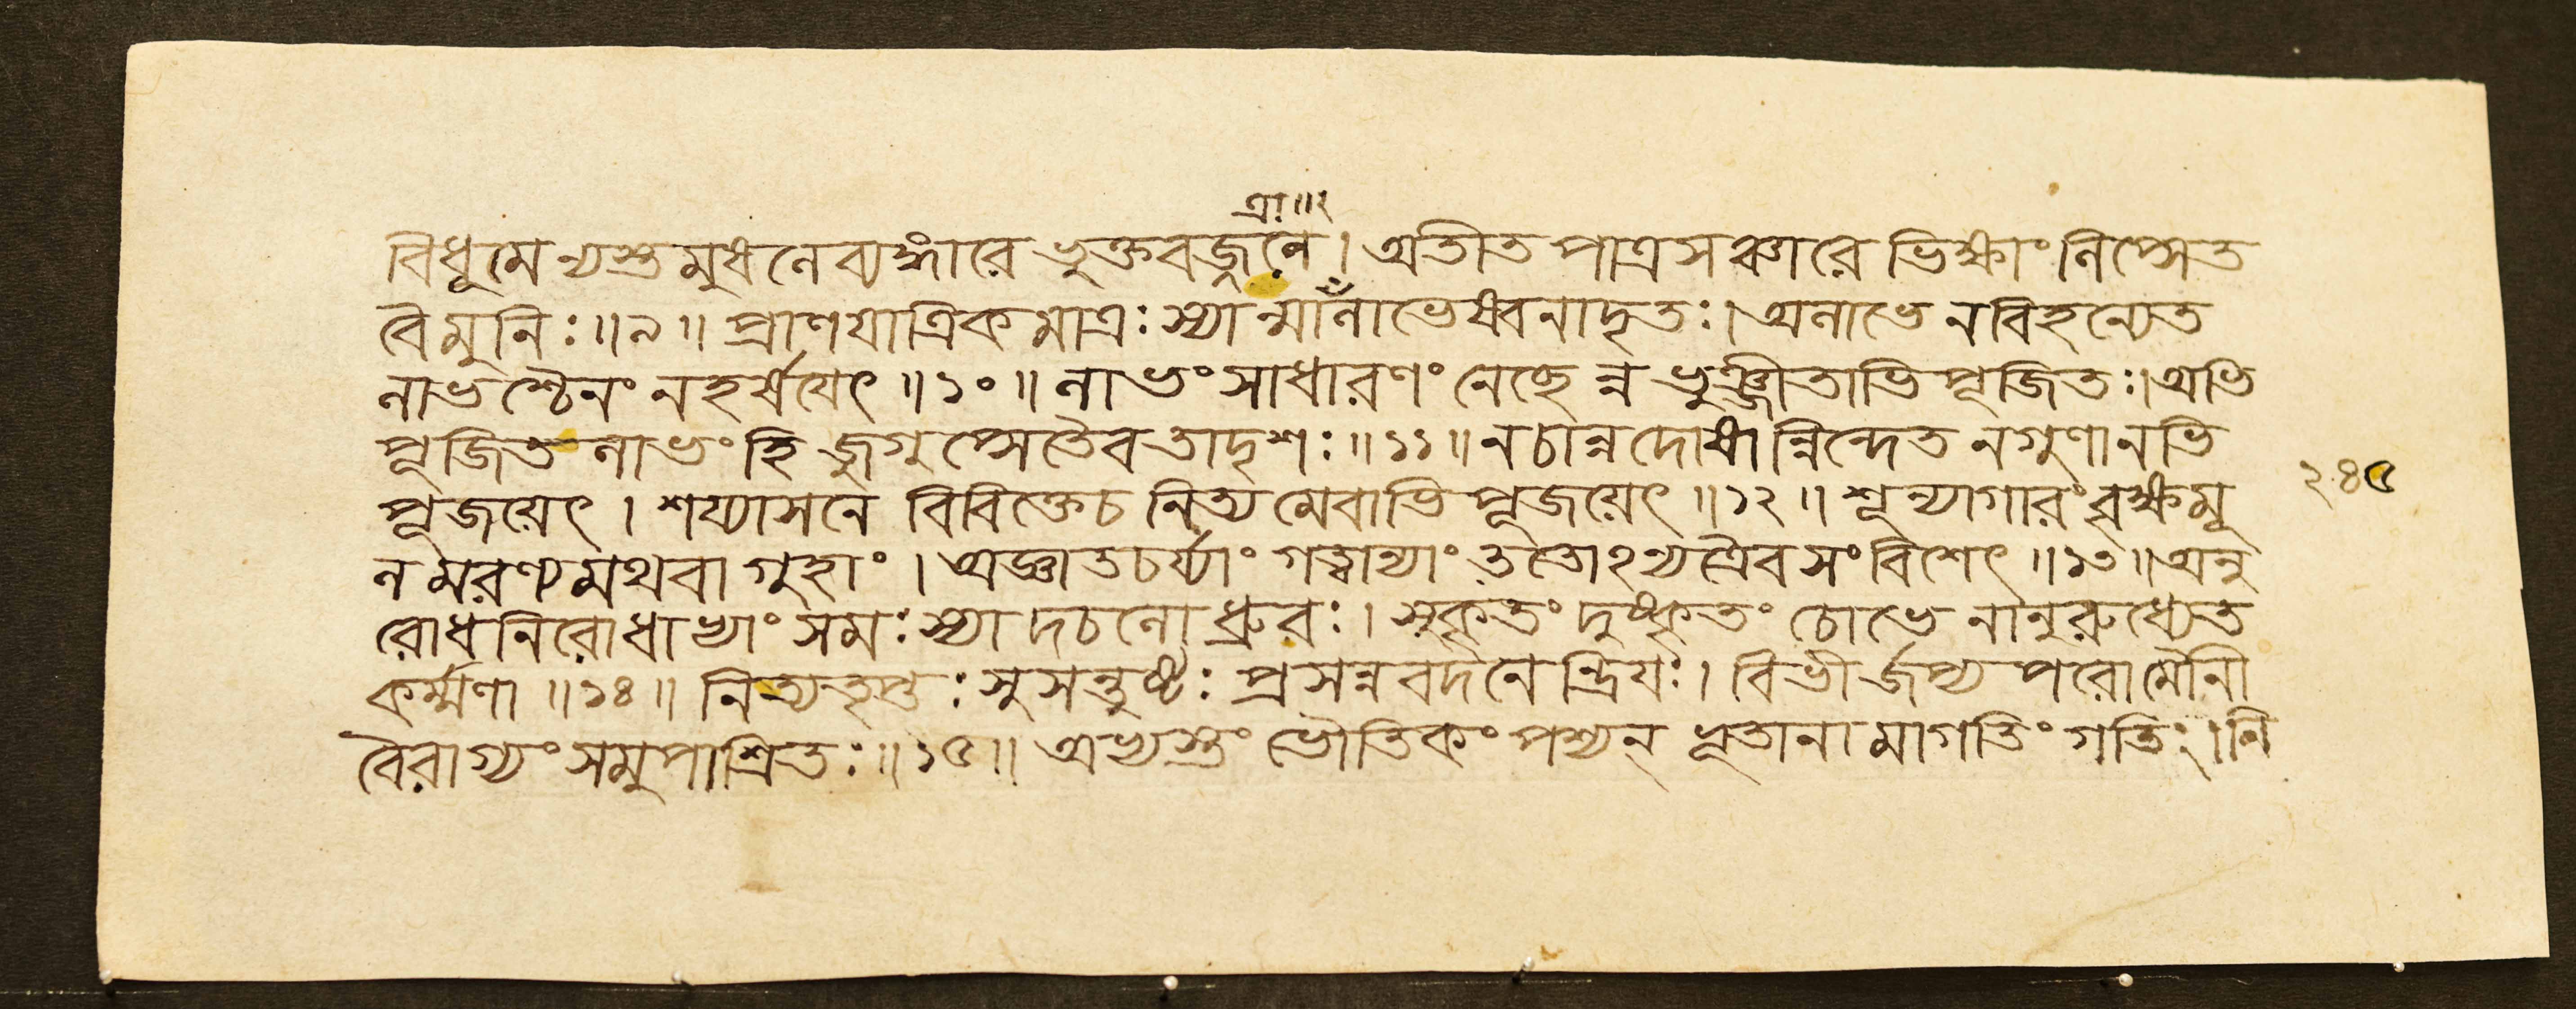 ত্রা॥২
বিধূমে ন্যস্তমুষলে ব্যঙ্গারে ভুক্তবজ্জনে। অতীত পাত্রসঞ্চারে ভিক্ষাং লিপ্সেত
বৈমুনিঃ॥৯॥ প্রাণযাত্রিকমাত্রঃ স্যান্মাঁলাভেষ্বনাদৃতঃ। অলাভে নবিহন্যেত
লাভশ্চৈনং নহর্ষয়েৎ॥১০॥ লাভং সাধারণং নেচ্ছেন্ন ভুঞ্জীতাভিপূজিতঃ। অভি
পূজিতলাভং হি জুগুপ্সেতৈবতাদৃশঃ॥১১॥ নচান্নদোষান্নিন্দেত নগুণানভি
পূজয়েৎ। শয্যাসনে বিবিক্তেচ নিত্যমেবাভিপূজয়েৎ॥১২॥ শূন্যাগারং বৃক্ষমূ ২৪৫
লমরণ্যমথবা গুহাং। অজ্ঞাতচর্য্যাং গত্বান্যাং ততোঽন্যত্রৈবসংবিশেৎ॥১৩॥ অনু
রোধনিরোধাভ্যাং সমঃ স্যাদচলো ধ্রুবঃ। সুকৃতং দুষ্কৃতং চোভে নানুরুধ্যেত
কর্ম্মণা॥১৪॥ নিত্যতৃপ্তঃ সুসন্তুষ্টঃ প্রসন্নবদনেন্দ্রিয়ঃ। বিভীর্জপ্যপরোমৌনী
বৈরাগ্যং সমুপাশ্রিতঃ॥১৫॥ অভ্যস্তং ভৌতিকং পশ্যন্ ভূতানামাগতিং গতিং। নি